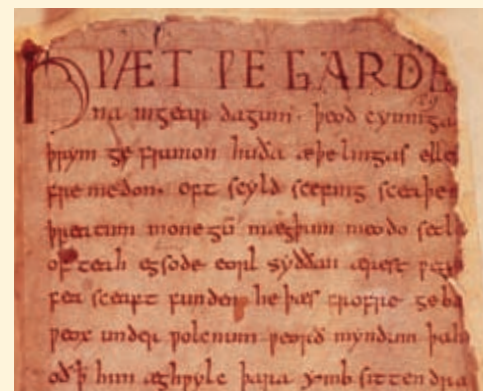 HǷÆT ǷE GARDE
na ingear dagum. þeod cyninga
þrym ge frunon huða æþelingas elle
fremedon. oft scyld scefing sceaþe
þreatum monegū mægþum meodo setla
of teah egsode eorl syððan ærest ƿear
fea sceaft funden he þæs frofre geba
ƿeox under ƿolcnum ƿeorð myndum þah
oð ꝥ him æghƿylc þara ymb sittendra